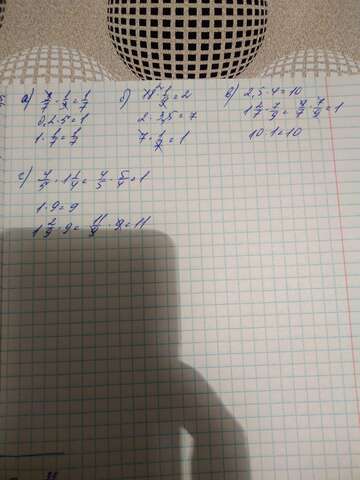 а) 2/7 · 1/2 = 1/7
0,2 · 5 = 1
1 · 1/7 = 1/7
б) · 1/2 = 2
2 · 3,5 = 7
7 · 1/7 = 1
в) 2,5 · 4 = 10
1 2/7 · 7/9 = 9/7 · 7/9 = 1
10 · 1 = 10
г) 4/5 · 1 1/4 = 4/5 · 5/4 = 1
1 · 9 = 9
1 2/9 · 9 = 11/9 · 9 = 11